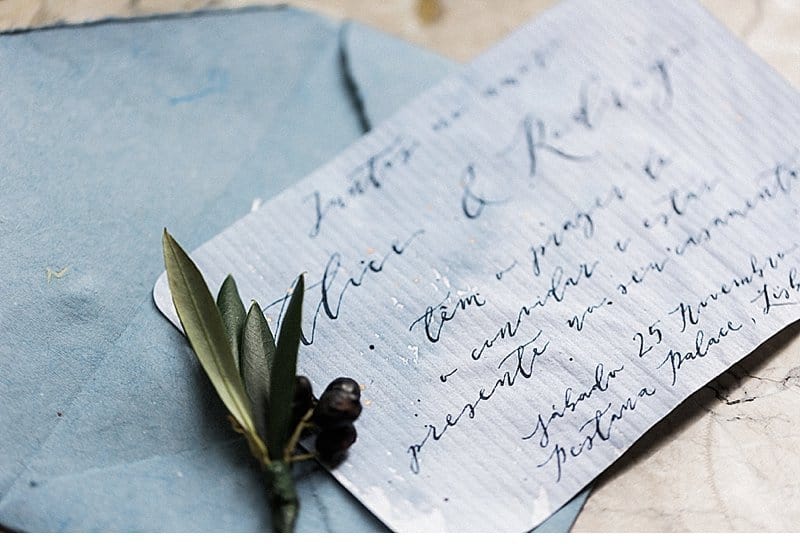 Juntos
Alice & Rodrigo
têm o prazer de
o convidar e estar
presente no seu casamento
Sábado 25 Novembro
Pestana Palace,